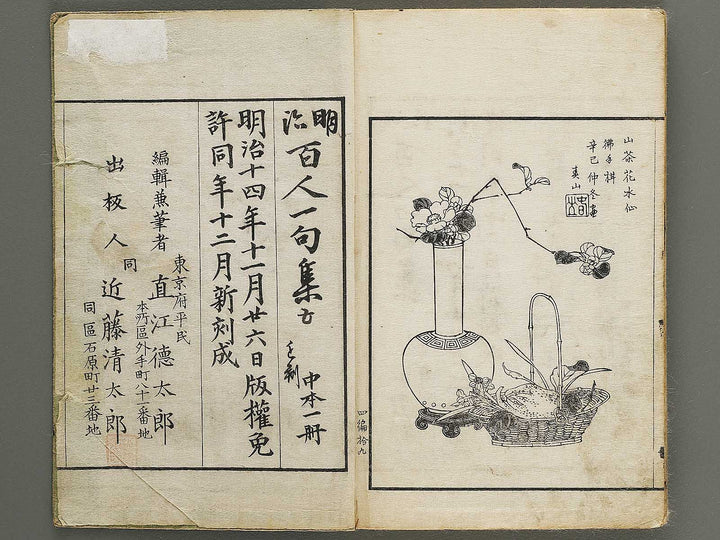 山茶花水仙
佛手柑
辛巳仲冬畫
春山
四編拾九
明治百人一句集
中本一册
明治十四年十一月廿六日版權免
許同年十二月新刻成
東京府平民
編輯兼筆者 直江德太郎
本所區外手町八十一番地
同
出板人 近藤清太郎
同區石原町廿三番地